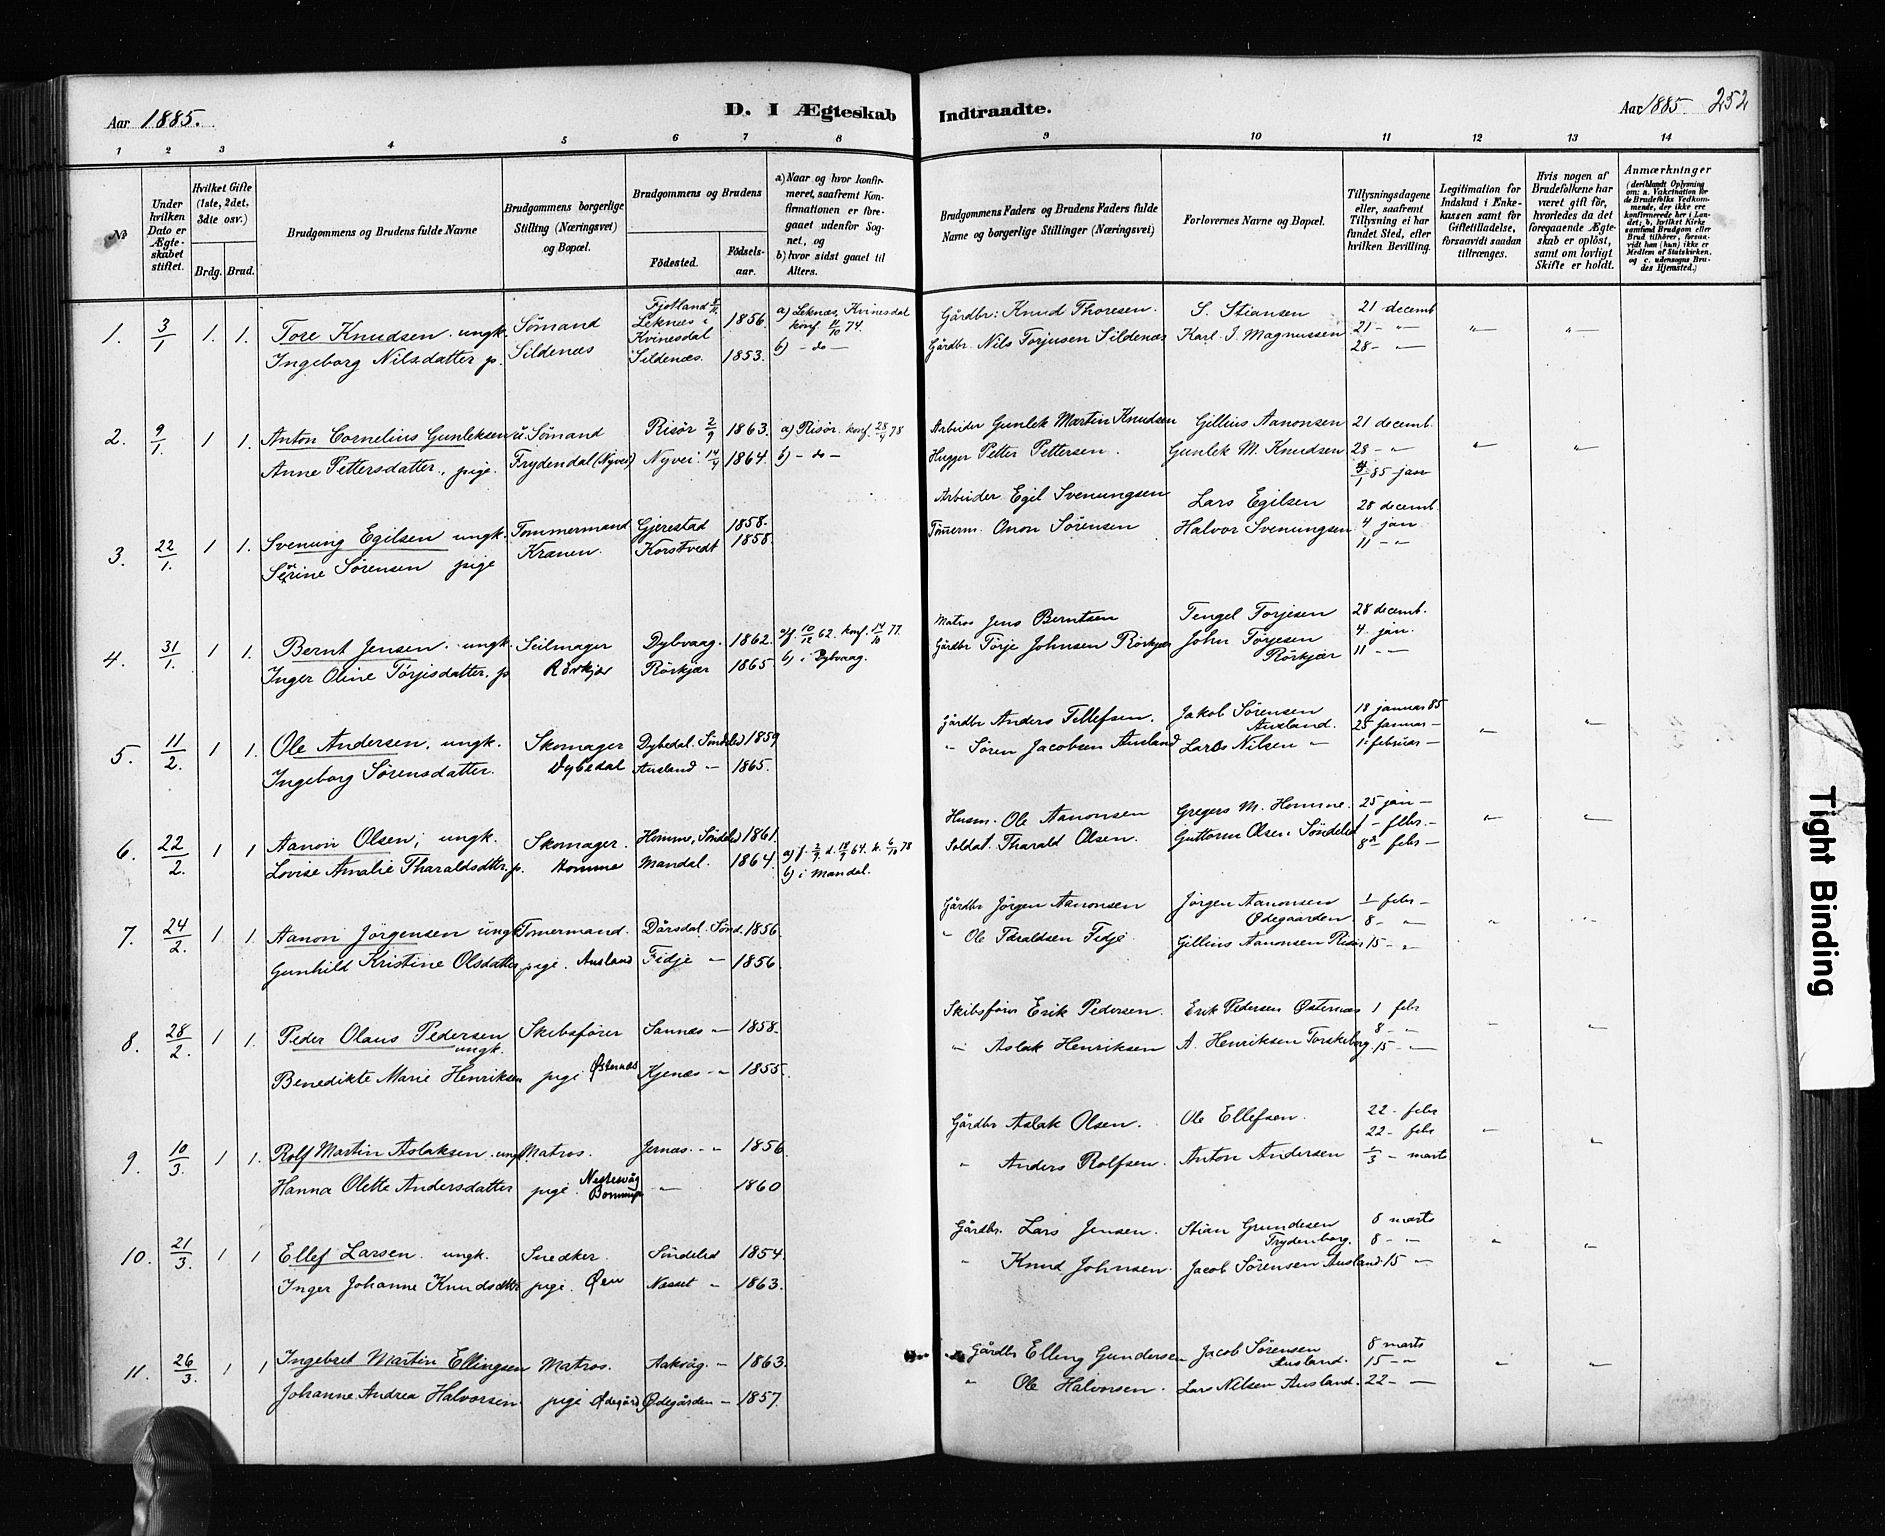 Aar 1885.
D. I Ægteskab Indtraadte.
Aar 1885. 252
1 2 3 4 5 6 7 8 9 10 11 12 13 14
No
Under hvilken Dato er Ægteskabet stiftet.
Hvilket Gifte (1ste, 2det, 3die osv.)
Brdg. Brud.
Brudgommens og Brudens fulde Navne
Brudgommens borgerlige Stilling (Næringsvei) og Bopæl.
Brudgommens og Brudens
Födested. Födsels-aar.
a) Naar og hvor konfirmeret, saafremt Konfirmationen er foregaaet udenfor Sognet, og
b) hvor sidst gaaet til Alters.
Brudgommens Faders og Brudens Faders fulde Navne og borgerlige Stillinger (Næringsvei)
Forlovernes Navne og Bopæl.
Tillysningsdagene eller, saafremt Tillysning ei har fundet Sted, efter hvilken Bevilling.
Legitimation for Indskud i Enkekassen samt for Giftetilladelse, forsaavidt saadan tiltrænges.
Hvis nogen af Brudefolkene har været gift før, hvorledes da det foregaaende Ægteskab er oplöst, samt om lovligt Skifte er holdt.
Anmærkninger
(deriblandt Oplysning om: a. Vakcination for de Brudefolks Vedkommende, der ikke ere konfirmerede her i Landet; b. hvilket Kirkesamfund Brudgom eller Brud tilhörer, forsaavidt han (hun) ikke er Medlem af Statskirken, og c. udensogns Brudes Hjemsted.)
1. 3/1 1. 1. Tore Knudsen ungk. Sömand Fjotland Leknæs i Kvinesdal 1856. a) Leknæs, Kvinesdal konf. 74. Gårdbr: Knud Thoresen S. Stiansen 21 decemb
Ingeborg Nilsdatter p. Sildenæs Sildenæs. 1853. b) - do - Gårdbr. Nils Torjusen Sildenæs Karl J. Magnussen 21 - "
28 - "
2. 9/1. 1 1. Anton Cornelius Gunleksen ü. Sömand Risör 2/9 1863. a) Risör. konf. 28/9 78 Arbeider Gunlek Martin Knudsen Gillius Aanonsen 21 decemb.
Anne Pettersdatter, pige. Frydendal (Nyvei) Nyvei. 14/9 1864. b) - do - Hugger Petter Pettersen. Gunlek M. Knudsen 28 - "
4/1 85 jan
3. 22/1. 1 1. Svenung Egilsen ungk. Tømmermand Gjerestad 1858. Arbeider Egil Svenungsen Lars Egilsen 28 decemb.
Serine Sörensen pige Kranen. Korstvedt 1858. Tömerm. Onon Sörensen Halvor Svenungsen 4 jan
11 - "
4. 31/1. 1 1. Bernt Jensen. ungk. Seilmager Dybvaag. 1862. a) f. 10/12 62. konf. 14/10 77. Matros Jens Berntsen Tengel Torjesen 28 decemb.
Inger Oline Törjisdatter. p. Rörkjær Rörkjær 1865 b) i Dybvaag. Gårdbr Törje Johnsen Rörkjær John Törjesen Rörkjær 4. jan.
11 - "
5. 11/2. 1 1. Ole Andersen, ungk. Skomager Dybedal. Söndeled 1859 Gårdbr Anders Tellefsen. Jakob Sörensen Ausland. 18 januar 85
Ingeborg Sörensdatter. Dybedal Ausland " 1865. " Sören Jacobsen Ausland Lars Nilsen " 25 januar -
1. februar -
6. 22/2. 1 1 Aanon Olsen, ungk. Skomager. Homme, Söndeled 1861. Husm. Ole Aanonsen Gregers M. Homme. 25 jan -
Lovise Amalie Tharaldsdttr. p. Homme Mandal. 1864. a) f. 2/9. d. 18/9 64. k. 6/10 78 Soldat. Tharald Olsen. Guttorm Olsen Söndeled 1 - febr. -
b) i Mandal. 8de febr -
7. 24/2. 1 1. Aanon Jörgensen ungk Tømermand. Dårsdal. Sönd. 1856. Gårdbr Jörgen Aanonsen Jörgen Aanonsen Ødegaarden 1 febr -
Gunhild Kristine Olsdatter pige. Ausland Fidje " 1856. " Ole Taraldsen Fidje. Gillius Aanonsen Risör 8 - "
15 - "
8. 28/2. 1 1. Peder Olaus Pedersen ungk. Skibsfører Sannæs " 1858. Skibsfører Erik Pedersen. Erik Pedersen Østernæs 1 febr
Benedikte Marie Henriksen pige Østernæs Kjenæs " 1855. " Aslak Henriksen A. Henriksen Torskeberg 8 - "
15 - "
9. 10/3. 1 1. Rolf Martin Aslaksen. ungk Matros. Jernæs. " 1856. Gårdbr Aslak Olsen. Ole Ellefsen. 22 - febr
22 - febr
Hanna Olette Andersdatter pige " 1860 " Anders Rolfsen. Anton Andersen 1/3 - marts
10. 21/3. 1 1 Ellef Larsen. ungk. Snedker. Söndeled 1854. Gårdbr. Lars Jensen. Stian Grundesen Frydenborg. 8 marts
8 - "
Inger Johanne Knudsdttr pige. Øen Næset " 1863. " Knud Johnsen. Jacob Sörensen Ausland 15 "
11. 26/3. 1 1 Ingebret Martin Ellingsen Matros. Aakvåg. " 1863. Gårdbr Elling Gundersen Jacob Sörensen Ausland. 8 marts
15 - "
Johanne Andrea Halvorsen. pige Ødegård Ødegården " 1857. " Ole Halvorsen. Lars Nilsen Ausland. 22 - "
Tight Binding